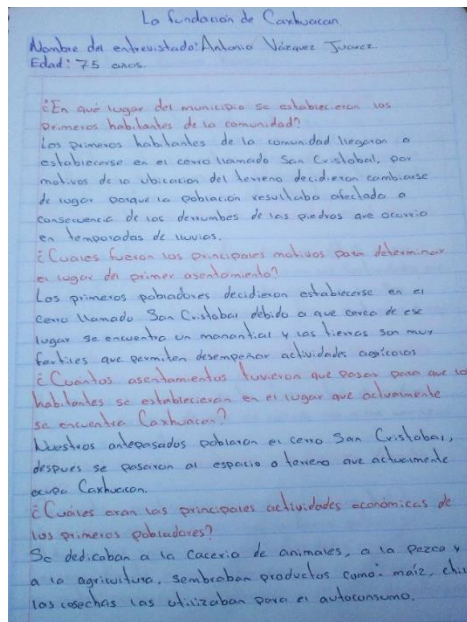 La fundación de Caxhuacan
Nombre del entrevistado: Antonio Vázquez Juarez
Edad: 75 años.
¿En que lugar del municipio se establecieron los
primeros habitantes de la comunidad?
Los primeros habitantes de la comunidad llegaron a
establecerse en el cerro llamado San Cristobal, por
motivos de la ubicación del terreno decidieron cambiarse
de lugar porque la población resultaba afectada a
consecuencia de los derrumbes de las piedras que ocurrio
en temporadas de lluvias.
¿Cuales fueron los principales motivos para determinar
el lugar del primer asentamiento?
Los primeros pobladores decidieron establecerse en el
cerro llamado San Cristobal debido a que cerca de ese
lugar se encuentra un manantial y las tierras son muy
fertiles que permiten desempeñar actividades agricolas
¿Cuantos asentamientos tuvieron que pasar para que lo
habitantes se establecieran en el lugar que actualmente
se encuentra Caxhuacan?
Nuestros antepasados poblaron el cerro San Cristobal,
despues se pasaron al espacio o terreno que actualmente
ocupa Caxhuacan.
¿Cuáles eran las principales actividades económicas de
los primeros pobladores?
Se dedicaban a la caceria de animales, a la pezca y
a la agricultura, sembraban productos como: maíz, chil
las cosechas las utilizaban para el autoconsumo.